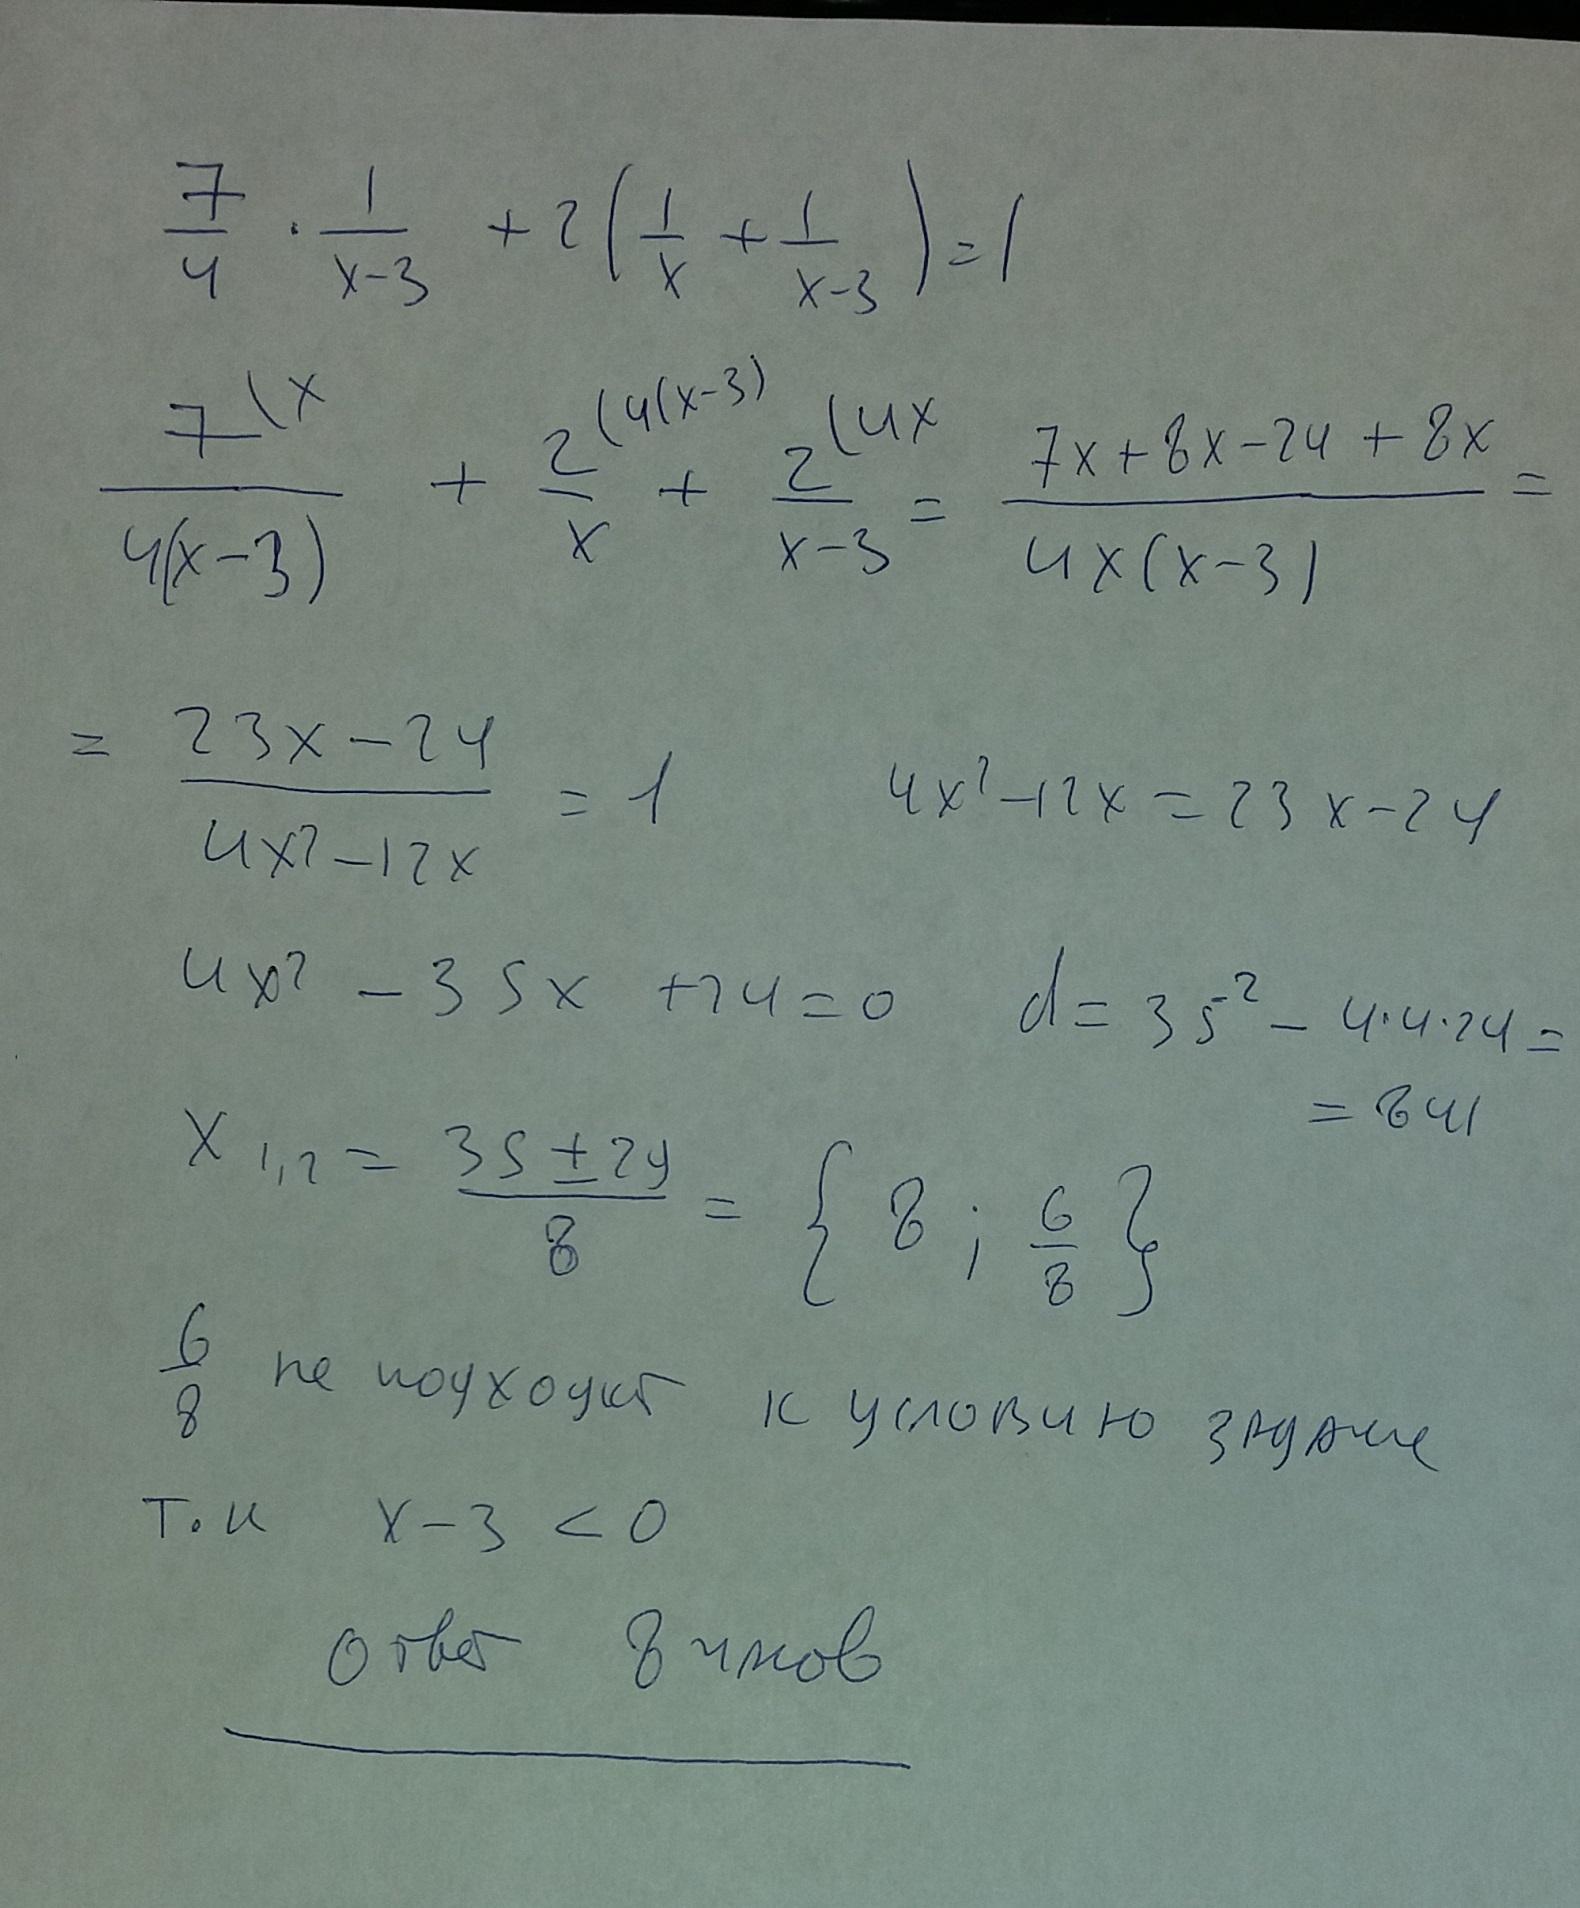 7/4 · 1/(x-3) + 2(1/x + 1/(x-3)) = 1
7(x / 4(x-3) + 2(4(x-3) / x + 2(4x / x-3 = (7x+8x-24+8x) / 4x(x-3) =
= (23x-24) / (4x²-12x) = 1 4x²-12x=23x-24
4x² - 35x +24=0 d= 35² - 4·4·24=
= 841
x 1,2 = (35±29)/8 = {8; 6/8}
6/8 не подходит к условию задачи
т.к x-3 <0
ответ 8 часов